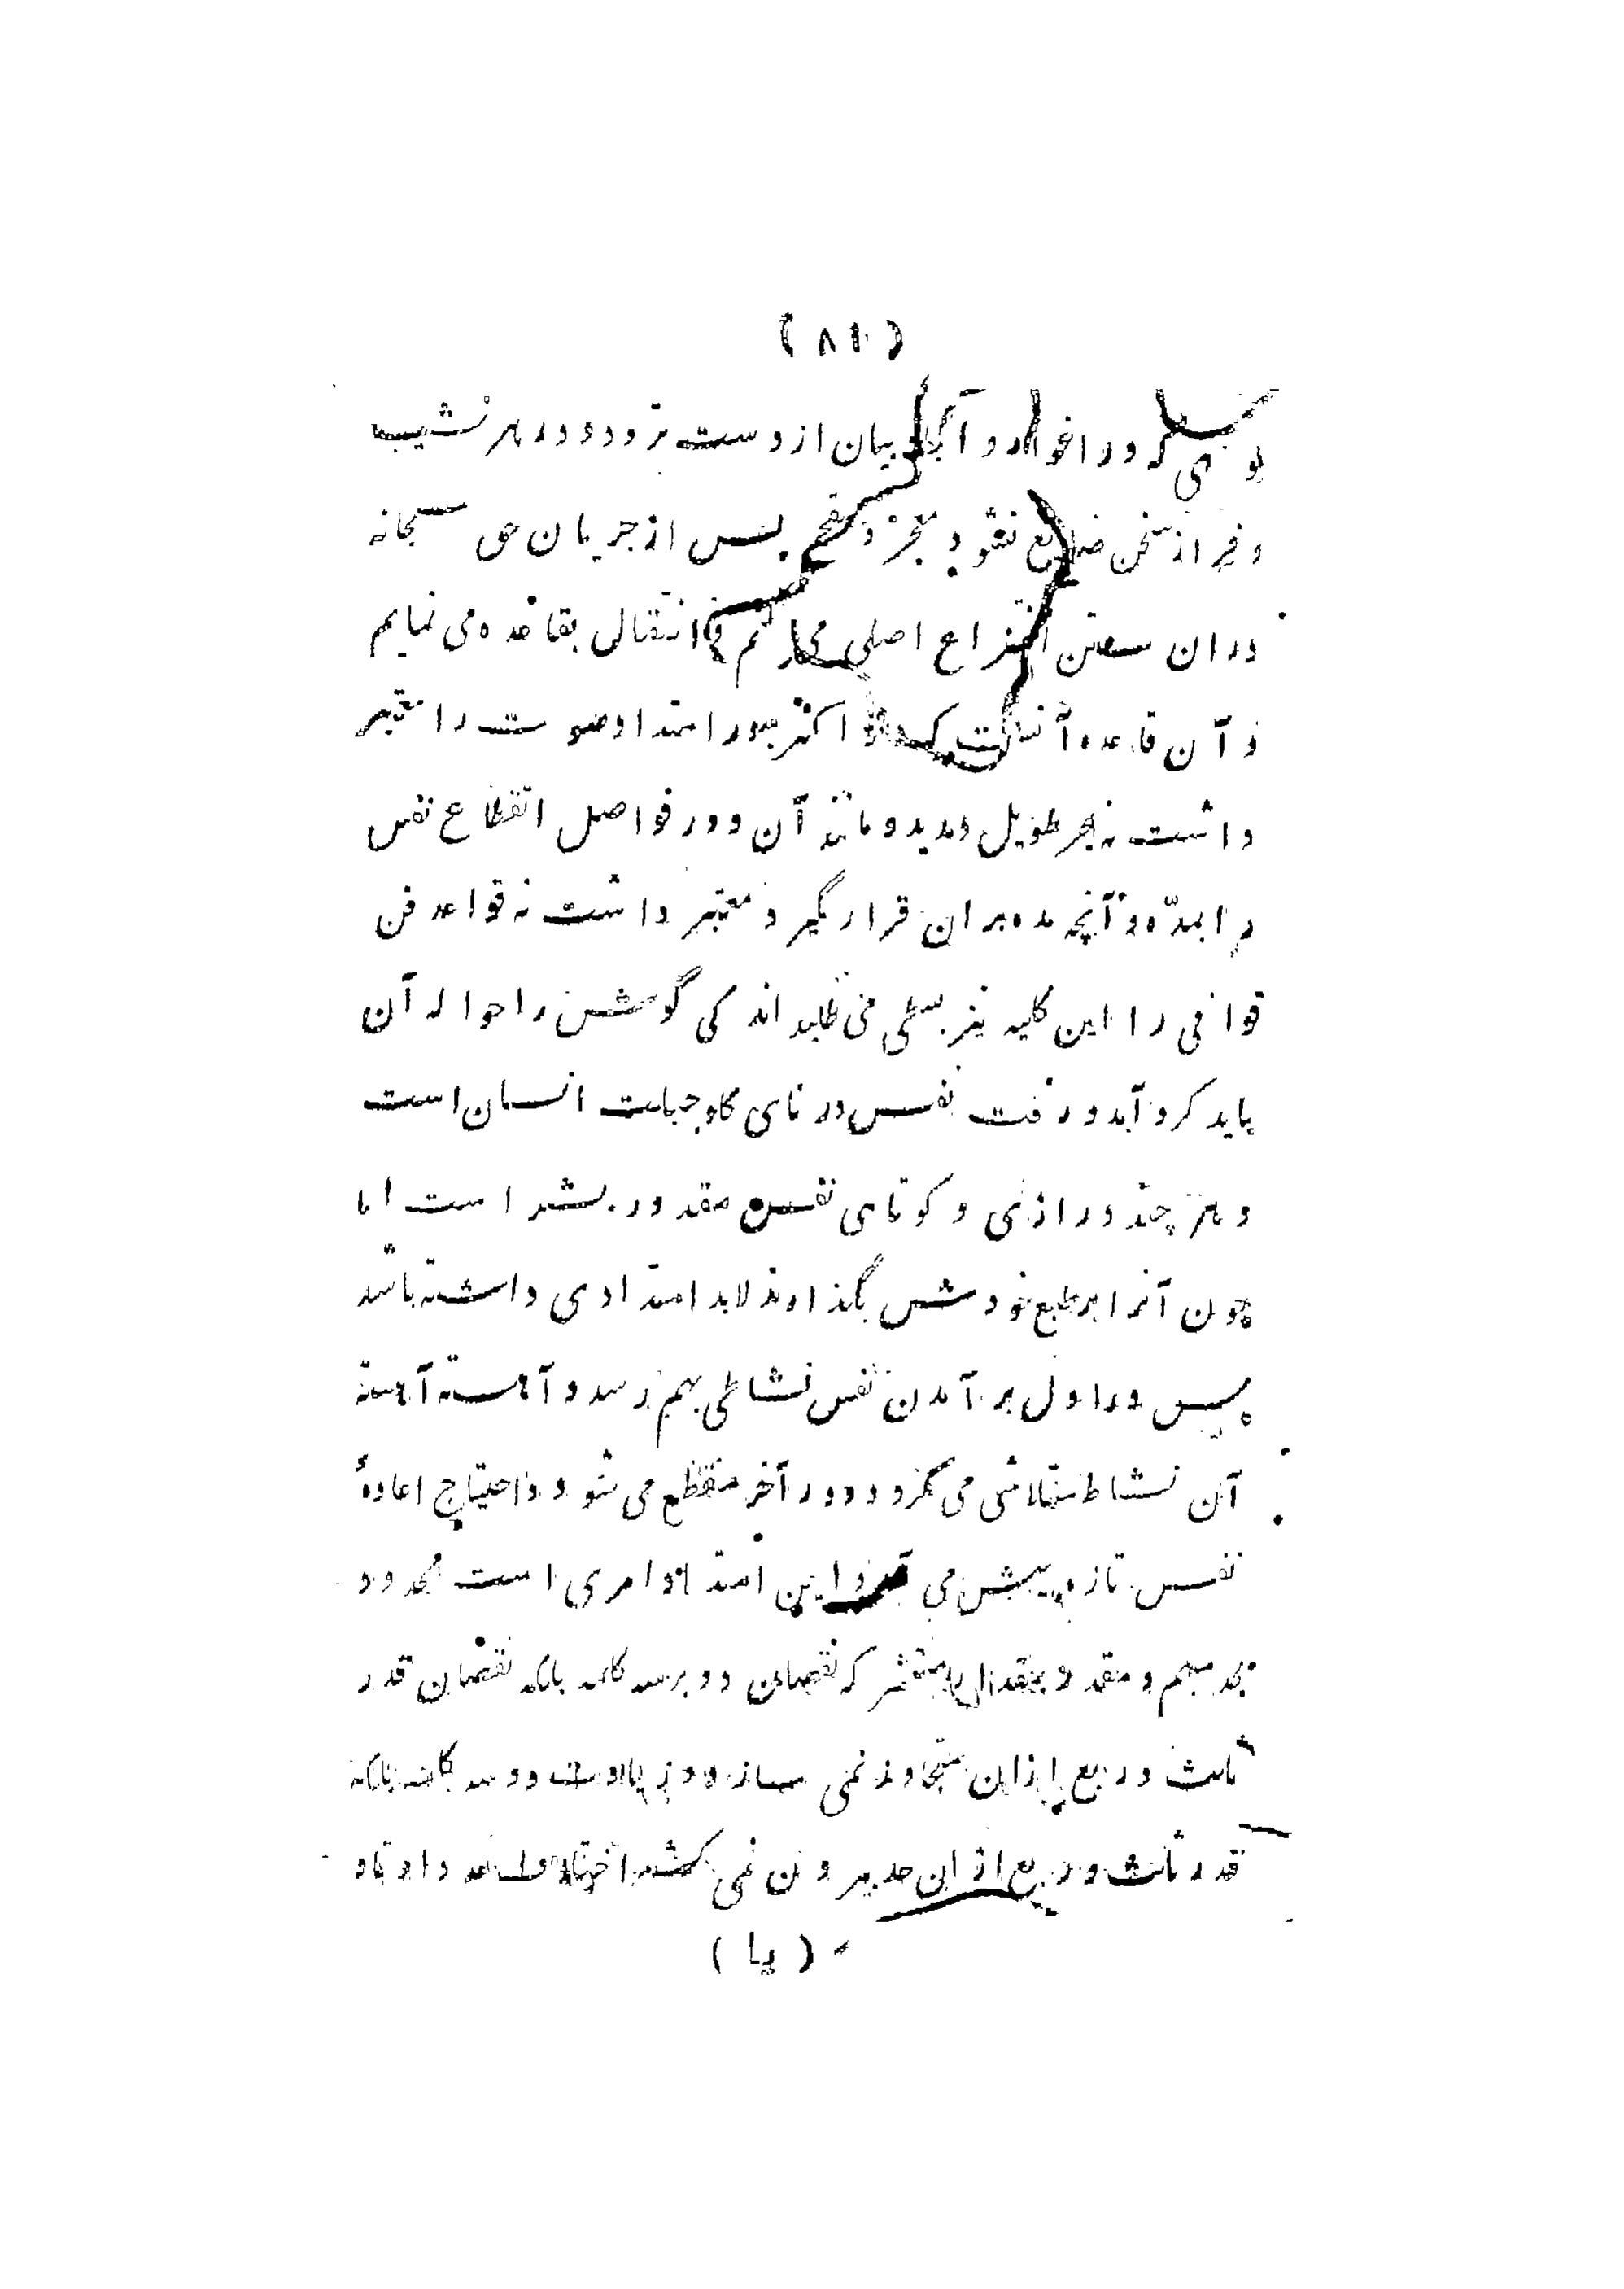 (۸۱)
بوجهی که در اغوار و آنجاد بیان از دست نرود و در هر نشیب
و فراز سخن ضایع نشود پس از جریان حق سبحانه
دران سعتن انتزاع اصلی می کنم و انتقال بقاعده می نمایم
و آن قاعده آنست که در اکثر سور امتداد صوت را معتبر
داشت نه بحر طویل و مدید و مانند آن و در فواصل انقطاع نفس
را بمدّه و آنچه مده بران قرار گیرد معتبر داشت نه قواعد فن
قوافی را این کلیه نیز بسطی می طلبد اندکی گوش را حواله آن
باید کرد آمد و رفت نفس در نای گلو جبلت انسان است
و هر چند درازی و کوتاهی نفس مقدور بشر است اما
چون آنرا بر طبع خودش بگذارند لابد امتدادی داشته باشد
پس در اول بر آمدن نفس نشاطی بهم رسد و آهسته آهسته
آن نشاط متلاشی می گردد و در آخر منقطع می شود و احتیاج اعادهٔ
نفس تازه پیش می و این امتداد امری است محدود
بحد مبهم و مقدر بمقدار منتشر که نقصان دو سه کلمه بلکه نقصان قدر
ثلث و ربع از ان متجاوز نمی سازد و زیادت دو سه کلمه بلکه
قدر ثلث و ربع از ان حد بیرون نمی کشد اختلاف عدد اوتاد